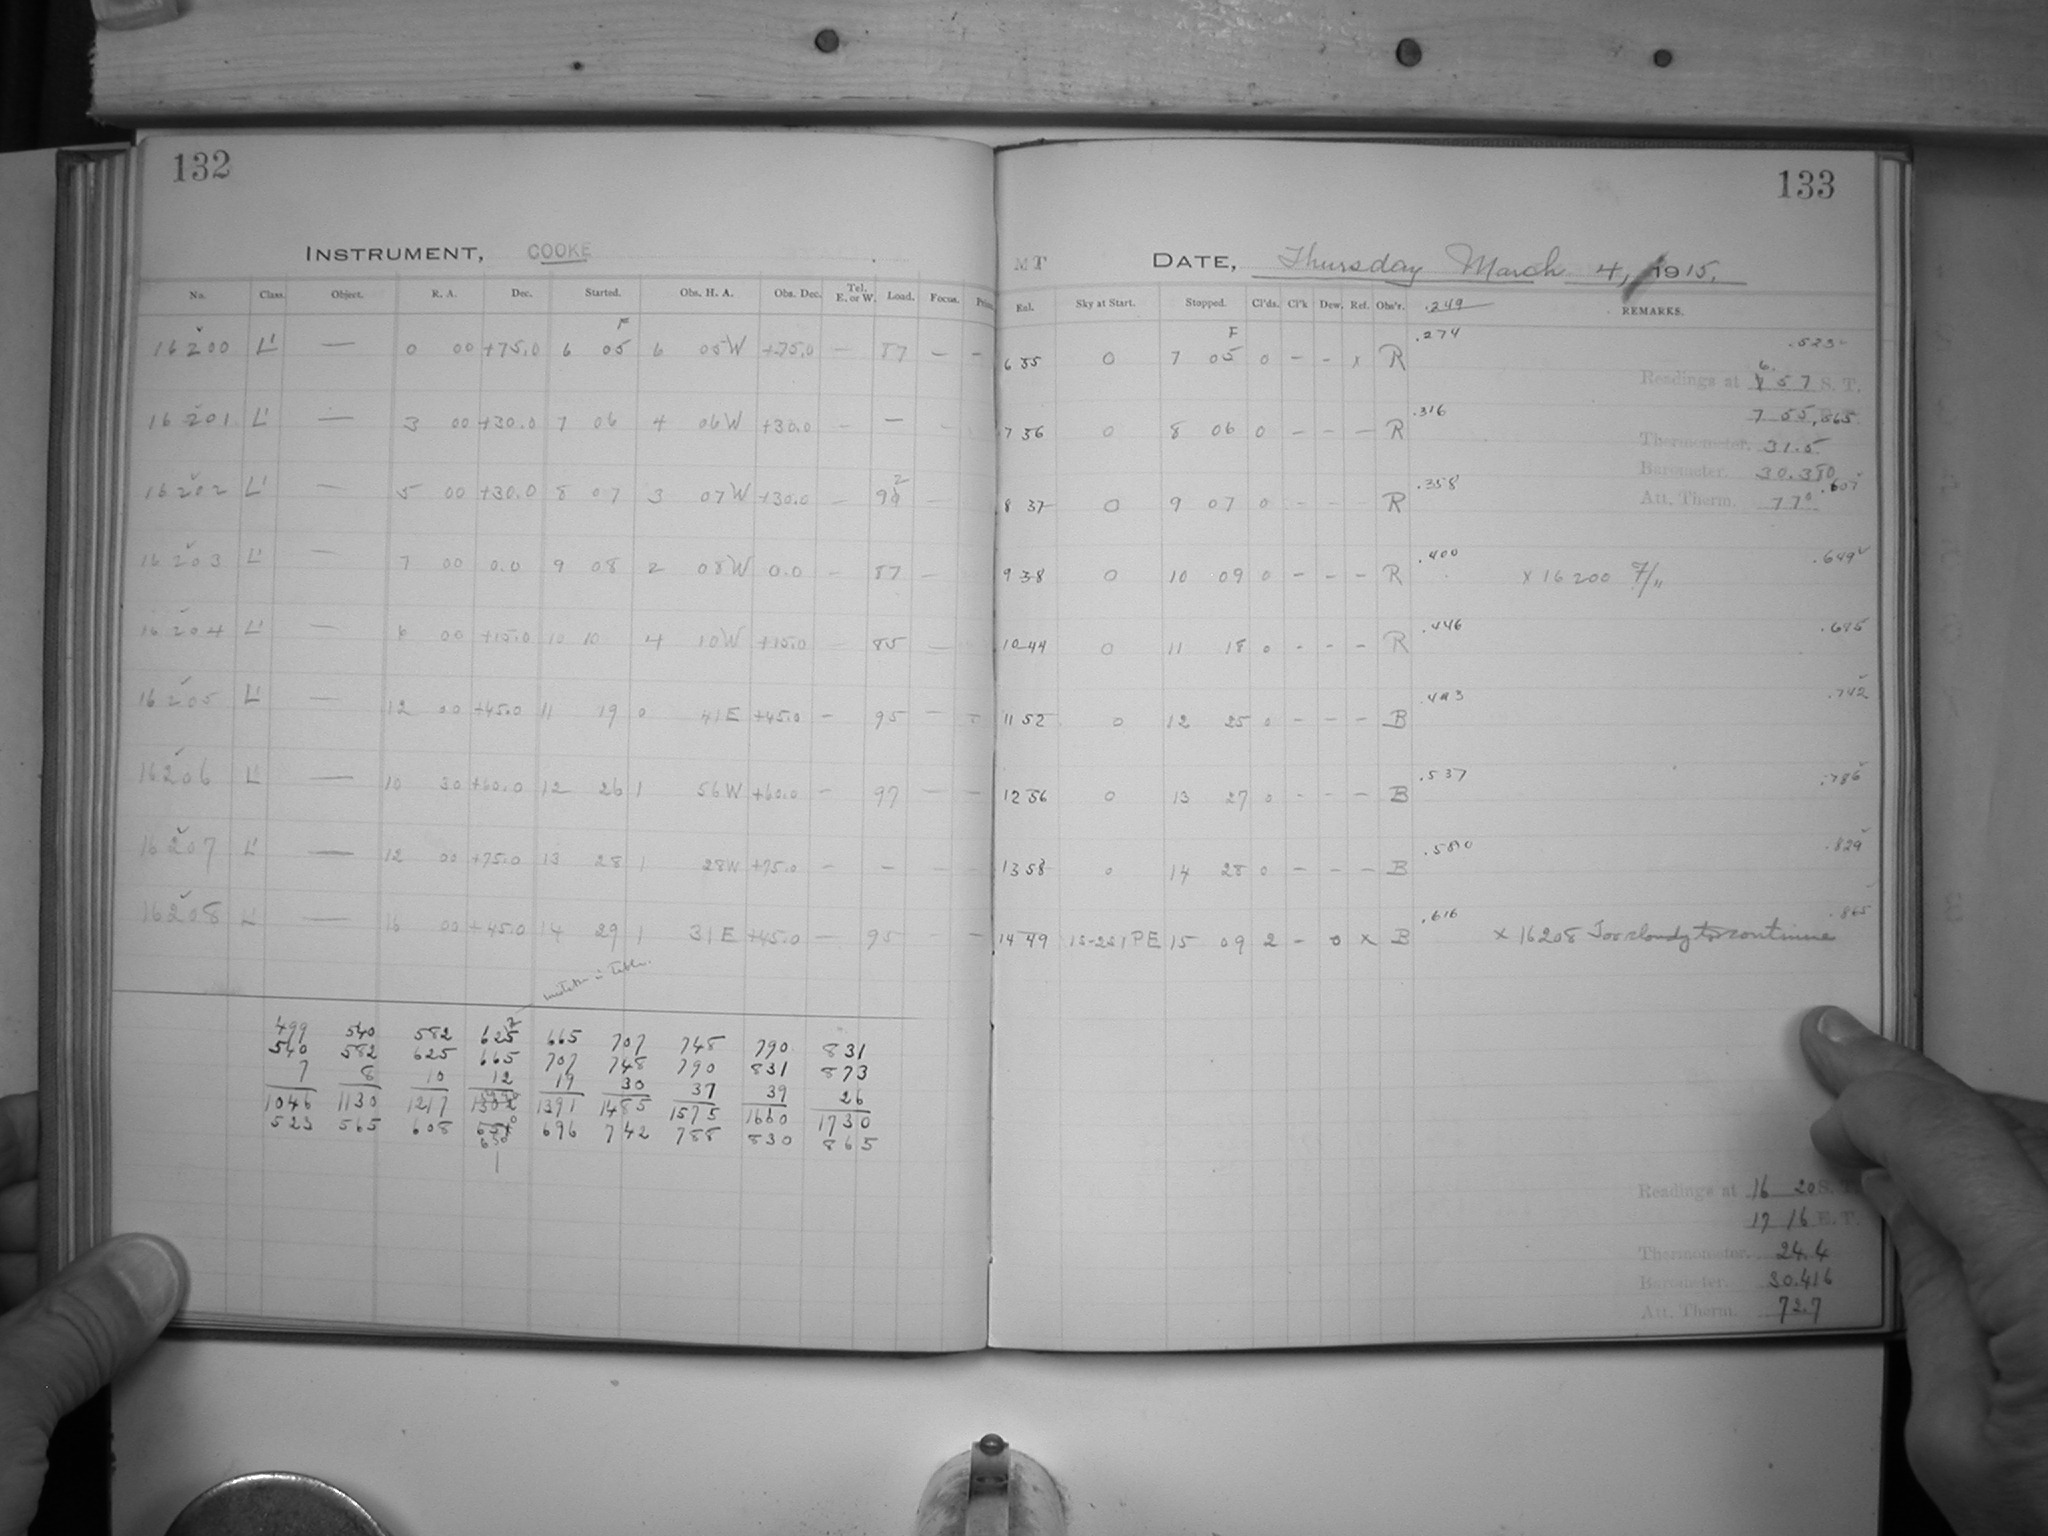 132
INSTRUMENT, COOKE
No. Class. Object. R. A. Dec. Started. Obs. H. A. Obs. Dec. Tel. E. or W. Load. Focus.
F
16200 L' — 0 00 +75.0 6 05 6 05W +75.0 — 87 — —
16201 L' — 3 00 +30.0 7 06 4 06W +30.0 — —
16202 L' — 5 00 +30.0 8 07 3 07W +30.0 —
16203 L' — 7 00 0.0 9 08 2 08W 0.0 — 87 —
16204 L' — 6 00 +15.0 10 10 4 10W +15.0 85 —
16205 L' — 12 00 +45.0 11 19 0 41E +45.0 — 95 —
16206 L' — 10 30 +60.0 12 26 1 56W +60.0 — 97 — —
16207 L' — 12 00 +75.0 13 28 1 28W +75.0 — —
16208 L' — 16 00 +45.0 14 29 1 31E +45.0 — 95 —
mistake in table.
499 540 582 625 665 707 748 790 831
540 582 625 665 707 748 790 831 873
7 8 10 12 19 30 37 39 26
1046 1130 1217 1302 1391 1485 1575 1660 1730
523 565 608 696 742 788 830 865
650
133
MT DATE, Thursday March 4, 1915.
Enl. Sky at Start. Stopped. Cl'ds. Cl'k Dew. Ref. Obs'r. .249 REMARKS.
F
6 35 0 7 05 0 - - x R .274 .523
Readings at 6 57 S. T.
7 36 0 8 06 0 - - — R .316 7 55 .565
Thermometer. 31.5
Barometer. 30.350
8 37 0 9 07 0 - - - R .358 .607
Att. Therm. 77°
9 38 0 10 09 0 - - - R .400 x 16200 F/,, .649
10 44 0 11 18 0 - - - R .446 .695
11 52 0 12 25 0 - - - B .493 .742
12 56 0 13 27 0 - - - B .537 .786
13 58 0 14 28 0 - - - B .580 .829
14 49 15-221PE 15 09 2 - 0 x B .616 x 16208 Too cloudy to continue .865
Readings at 16 20 S. T.
17 16 E. T.
Thermometer. 24.4
Barometer. 30.416
Att. Therm. 72.7